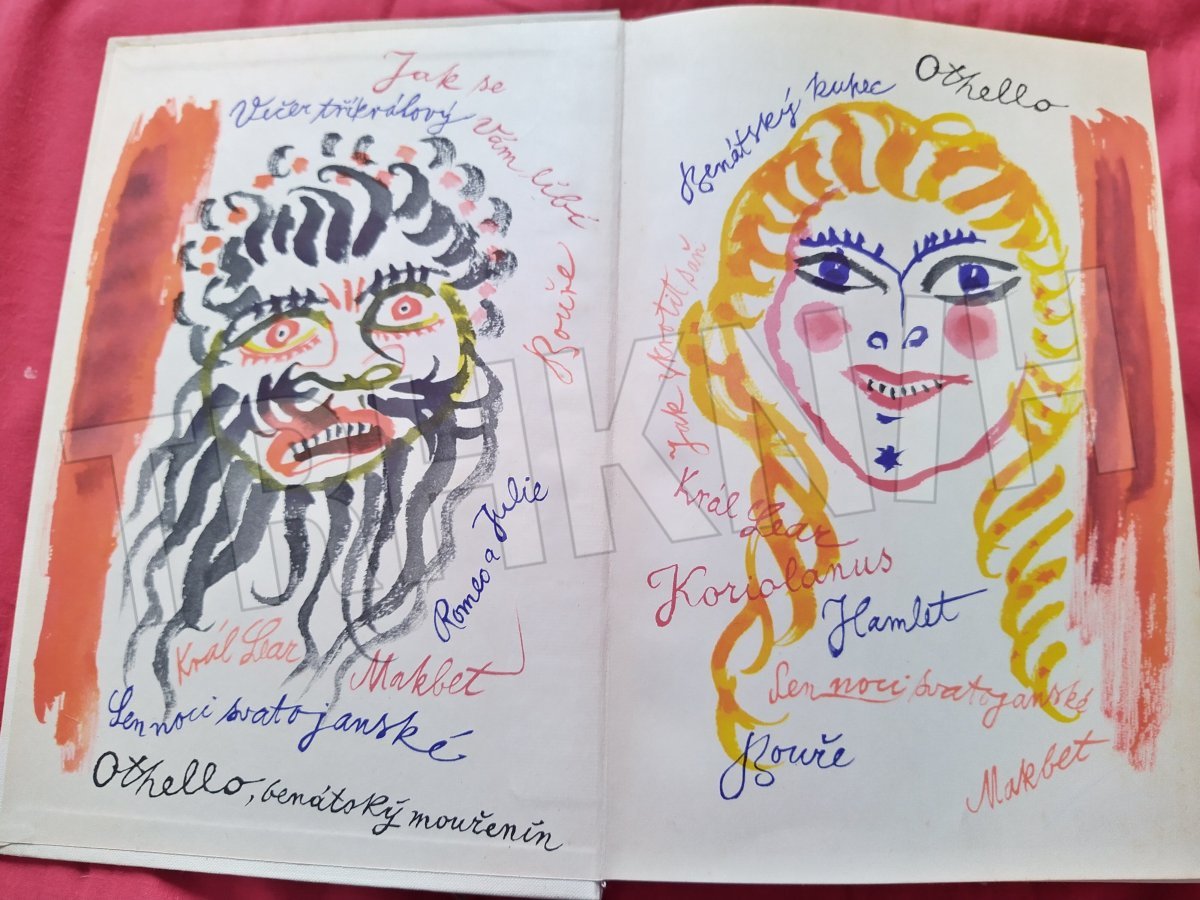 Jak se
Vám líbí
Večer tříkrálový
Bouře
Romeo a Julie
Král Lear
Makbet
Sen noci svatojanské
Othello, benátský mouřenín
Othello
Benátský kupec
Jak zkrotit saň
Král Lear
Koriolanus
Hamlet
Sen noci svatojanské
Bouře
Makbet
TRHKNIH